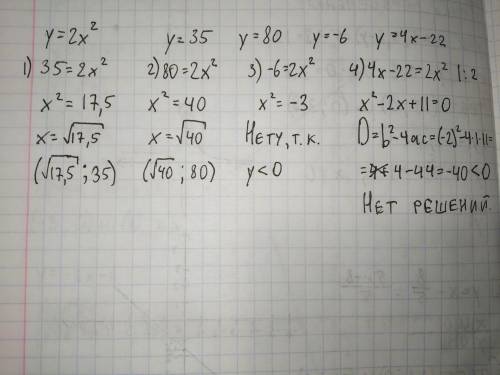 y=2x² y=35 y=80 y=-6 y=4x-22
1) 35=2x²
x²=17,5
x=√17,5
(√17,5; 35)
2) 80=2x²
x²=40
x=√40
(√40; 80)
3) -6=2x²
x²=-3
Нету, т.к.
y<0
4) 4x-22=2x² |:2
x²-2x+11=0
D=b²-4ac=(-2)²-4·1·11=
=4-44=-40<0
Нет решений.